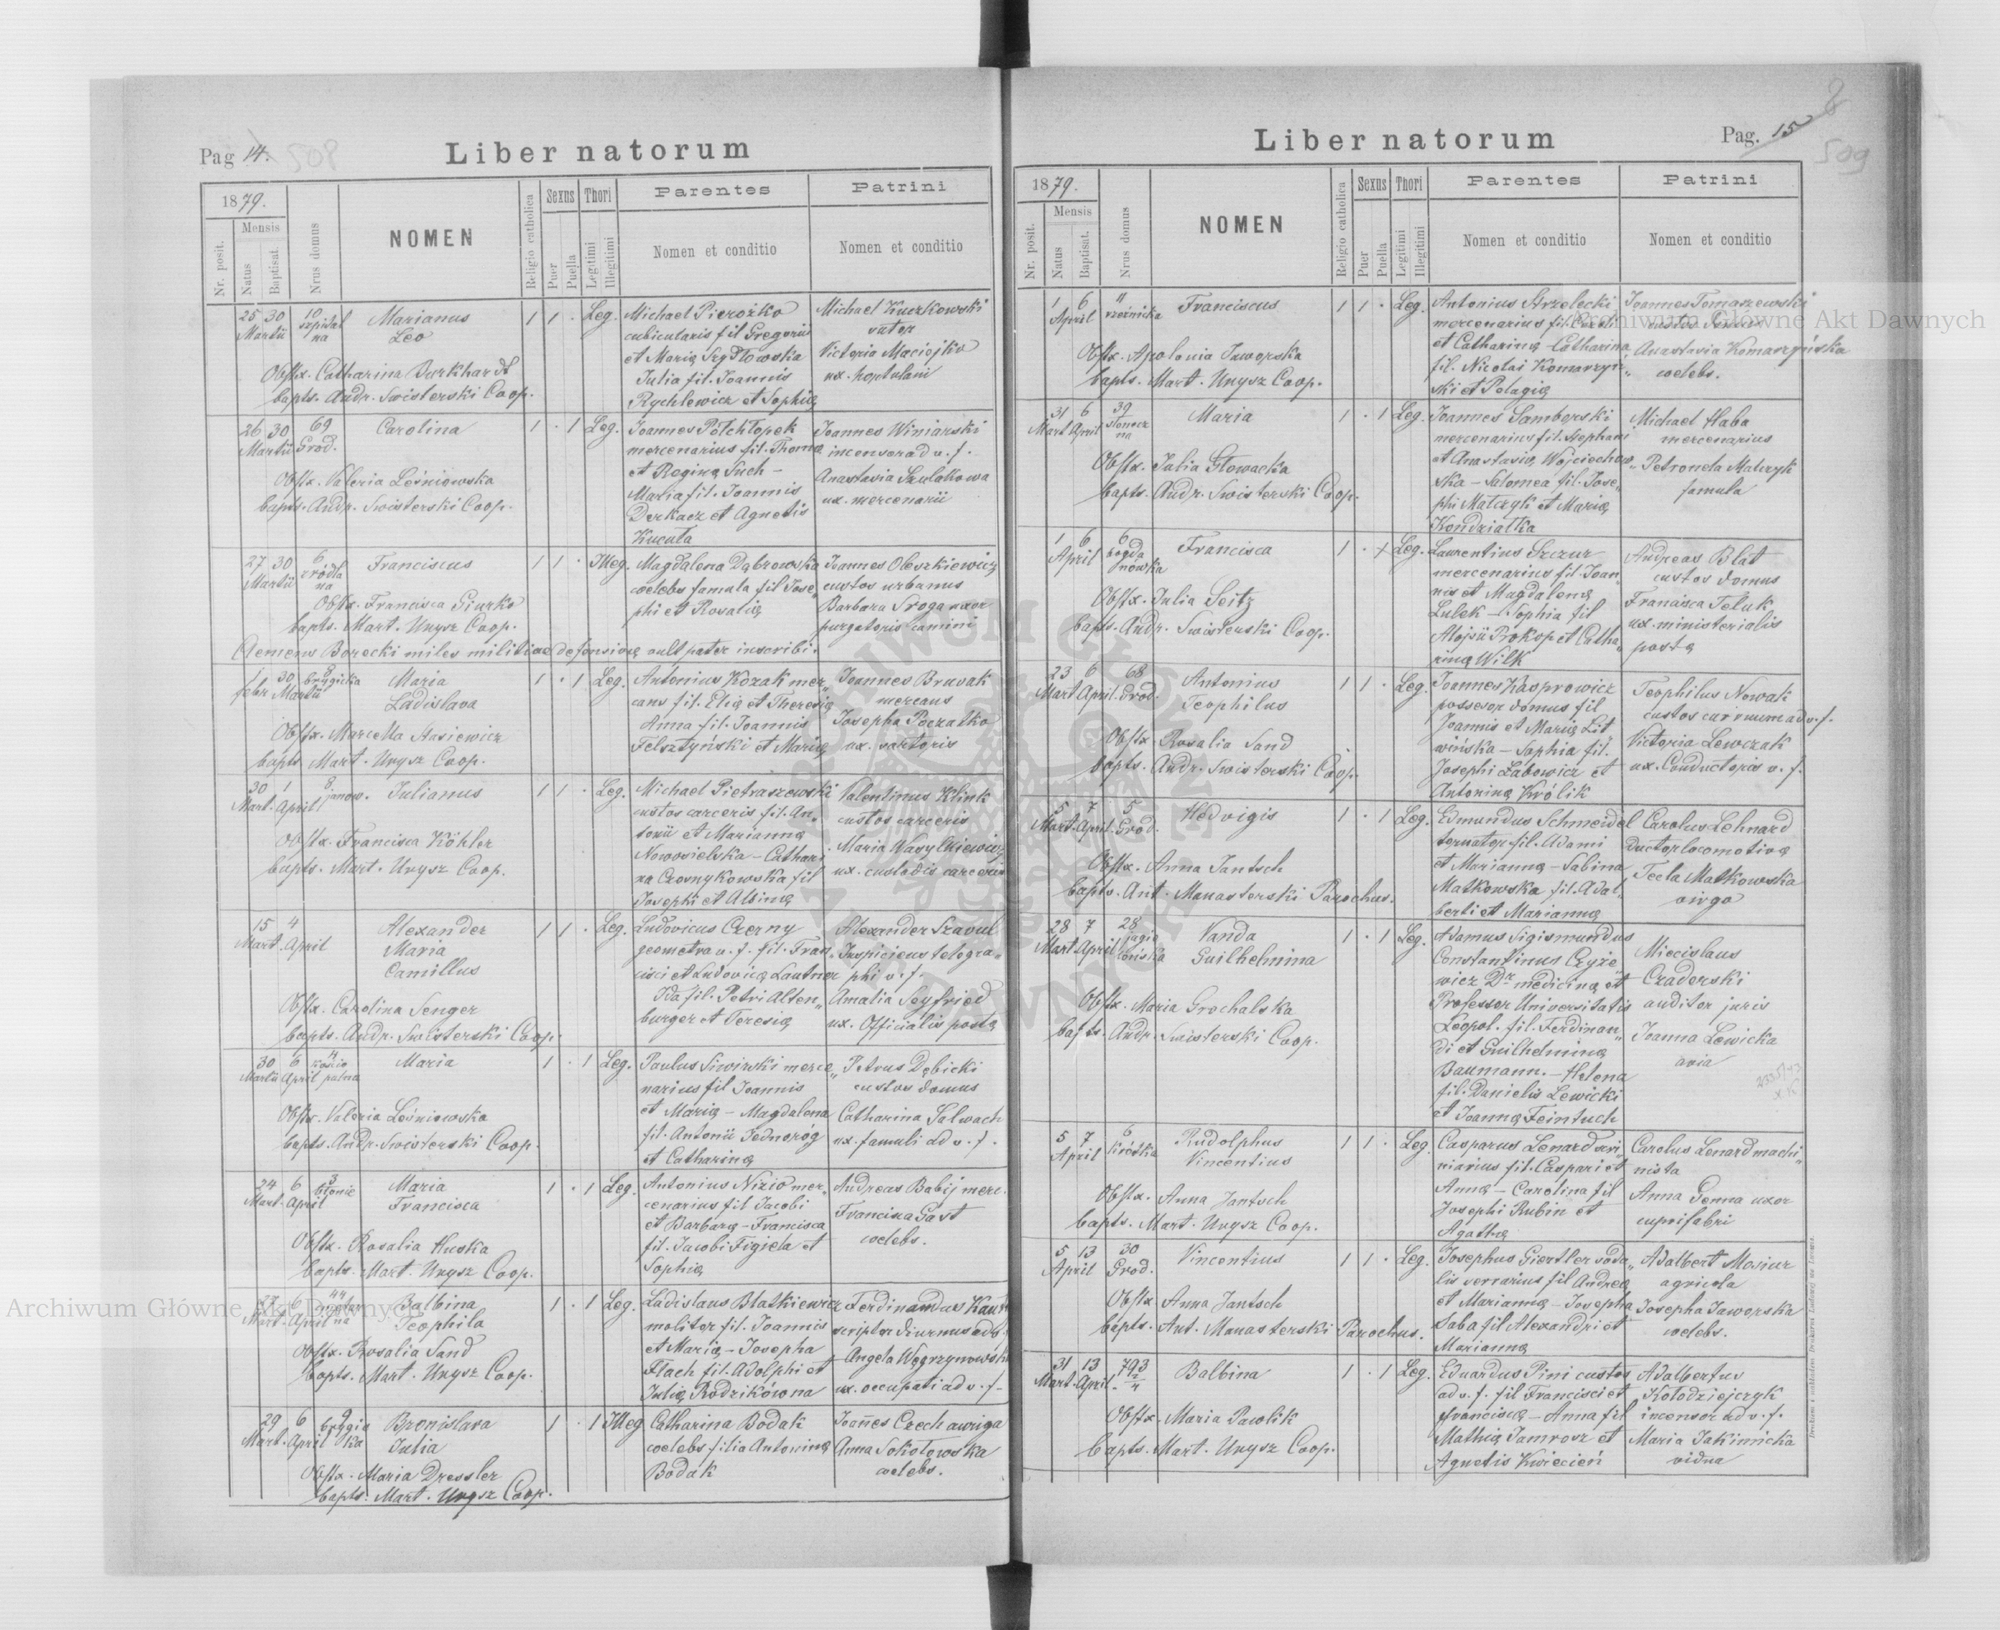 Pag 14. 508
Liber natorum
1879.
Mensis
Nr. posit.
Natus
Baptisat.
Nrus domus
NOMEN
Religio catholica
Sexus
Puer
Puella
Thori
Legitimi
Illegitimi
Parentes
Nomen et conditio
Patrini
Nomen et conditio
25 30 10 Marianus 1 1 . Leg. Michael Pierożko Michael Kuczkowski
Martii szpital Leo cubicularis fil Gregorii sutor
na et Mariæ Szydłowska Victoria Maciejko
Obstx. Catharina Burkhardt Julia fil. Joannis ux. hortulani
bapts. Andr. Swisterski Coop. Rychlewicz et Sophiæ
26 30 69 Carolina 1 . 1 Leg. Joannes Półchłopek Joannes Winiarski
Martii Grod. mercenarius fil. Thomæ incensor ad v. f.
Obstx. Valeria Leśniowska et Reginæ Such - Anastasia Szulakowa
bapts. Andr. Swisterski Coop. Maria fil. Joannis ux. mercenarii
Derkacz et Agnetis
Kucuła
27 30 6 Franciscus 1 1 . Illeg. Magdalena Dąbrowska Joannes Oleszkiewicz
Martii źródla coelebs famula fil Jose„ custos urbanus
na phi et Rosaliæ Barbara Sroga uxor
Obstx. Francisca Giurko purgatoris camini
bapts. Mart. Unysz Coop.
Clemens Borecki miles militiae defensivæ vult pater inscribi.
1 30 9 Maria 1 . 1 Leg. Antonius Kozak mer„ Joannes Brusak
febr Martii brygicka Ladislava cans fil. Eliæ et Theresiæ mercans
Obstx. Marcella Stasiewicz Anna fil. Joannis Josepha Poczatko
bapts Mart. Unysz Coop. Felsztyński et Mariæ ux. sartoris
30 1 8 Julianus 1 1 . Leg. Michael Pietraszewski Valentinus Klink
Mart. April janow. custos carceris fil. An„ custos carceris
Obstx. Francisca Köhler tonii et Marianna Maria Wasylkiewicz
bapts. Mart. Unysz Coop. Nowosielska - Cathari ux. custodis carceris
na Czornykowska fil
Josephi et Albinæ
15 4 Alexander 1 1 . Leg. Ludovicus Czerny Alexander Szavul
Mart. April Maria geometra v. f. fil. Fran„ Inspiciens telegra„
Camillus cisci et Ludovicæ Lautner phi v. f.
Obstx. Carolina Senger Ida fil. Petri Alten„ Amalia Seyfried
bapts. Andr. Swisterski Coop. burger et Teresiæ ux. Officialis postæ
30 6 4 Maria 1 . 1 Leg. Paulus Siwirski merce„ Petrus Dębicki
Martii April narius fil Joannis custos domus
Obstx. Valeria Leśniowska et Mariæ - Magdalena Catharina Salwach
bapts. Andr. Swisterski Coop. fil. Antonii Jednoróg ux. famuli ad v. f.
et Catharinæ
24 6 3 Maria 1 . 1 Leg. Antonius Nizio mer„ Andreas Babij merc.
Mart. April błonie Francisca cenarius fil Jacobi Francisca Gast
Obstx. Rosalia Huska et Barbaræ - Francisca coelebs.
bapts. Mart. Unysz Coop. fil. Jacobi Figiela et
Sophiæ
27 6 44 Balbina 1 . 1 Leg. Ladislaus Blatkiewicz Ferdinandus
Mart. April na Teophila molitor fil. Joannis scriptor diurnus ad v.
Obstx. Rosalia Sand et Mariæ - Josepha Angela
bapts. Mart. Unysz Coop. Flach fil. Adolphi et ux. occupati ad v. f.
Juliæ Rodzikówna
29 6 9 Bronislava 1 . 1 Illeg Catharina Bodak Joannes Czech auriga
Mart. April brygic Julia coelebs filia Antoninæ Anna Sokołowska
ka Bodak coelebs.
Obstx. Maria Dressler
bapts. Mart. Unysz Coop.
Liber natorum
Pag. 15 8
509
1879.
Mensis
Nr. posit.
Natus
Baptisat.
Nrus domus
NOMEN
Religio catholica
Sexus
Puer
Puella
Thori
Legitimi
Illegitimi
Parentes
Nomen et conditio
Patrini
Nomen et conditio
1 6 11 Franciscus 1 1 . Leg. Antonius Strzelecki Joannes Tomaszewski
April rzeźnicka mercenarius fil. custos
Obstx. Apolonia Jaworska et Catharinæ - Catharina Anastasia Komarzyńska
bapts. Mart. Unysz Coop. fil. Nicolai Komarzyń„ coelebs.
ski et Pelagiæ
31 6 39 Maria 1 . 1 Leg. Joannes Samborski Michael Haba
Mart April słonecz mercenarius fil. Stephani mercenarius
na et Anastasiæ Wojciechow„ Petronela Matczyk
Obstx. Julia Głowacka ska - Salomea fil. Jose„ famula
bapts. Andr. Swisterski Coop. phi Matczyk et Mariæ
Kondziałka
1 6 6 Francisca 1 . 1 Leg. Laurentius Szczur Andreas Blat
April bogda mercenarius fil. Joan„ custos domus
nówka nis et Magdalenæ Francisca Teluk
Obstx. Julia Seitz Lulek - Sophia fil ux. ministerialis
bapts. Andr. Swisterski Coop. Alojsii Prokop et Catha„ postæ
rinæ Wilk
23 6 68 Antonius 1 1 . Leg. Joannes Kasprowicz Teophilus Nowak
Mart April Grod. Teophilus possesor domus fil custos curruum ad v. f.
Obstx Rosalia Sand Joannis et Mariæ Lit Victoria Lewczak
bapts. Andr. Swisterski Coop. wińska - Sophia fil. ux. Conductoris v. f.
Josephi Labowicz et
Antoninæ Królik
5 7 5 Hedvigis 1 . 1 Leg. Edmundus Schmeidel Carolus Lehnard
Mart. April Grod. tornator fil. Adami ductor locomotivæ
Obstx. Anna Jantsch et Mariannæ - Sabina Tecla Matkowska
bapts. Ant. Manasterski Parochus. Matkowska fil. Adal„ virgo
berti et Mariannæ
28 7 28 Vanda 1 . 1 Leg. Adamus Sigismundus Miecislaus
Mart April jagie Guilhelmina Constantinus Czyże„ Czaderski
lońska wicz Dr. medicinæ et auditor juris
Obstx. Maria Grochalska Professor Universitatis Joanna Lewicka
bapts. Andr. Swisterski Coop. Leopol. fil. Ferdinan„ avia
di et Guilhelminæ
Baumann. - Helena
fil. Danielis Lewicki
et Joannæ Feintuch
5 7 6 Rudolphus 1 1 . Leg. Casparus Lenard scri„ Carolus Lenard machi„
April krótka Vincentius niarius fil. Caspari et nista
Obstx. Anna Jantsch Annæ - Carolina fil Anna Genna uxor
bapts. Mart. Unysz Coop. Josephi Rubin et cuprifabri
Agathæ
5 13 30 Vincentius 1 1 . Leg. Josephus Giertler soda„ Adalbert Mosiur
April Grod. lis serrarius fil Andreæ agricola
Obstx Anna Jantsch et Mariannæ - Josepha Josepha Jaworska
bapts. Ant. Manasterski Parochus. Saba fil Alexandri et coelebs.
Mariannæ
31 13 793 Balbina 1 . 1 Leg. Eduardus Pini custos Adalbertus
Mart. April. 2/4 ad v. f. fil Francisci et Kołodziejczyk
Obstx Maria Pawlik Franciscæ - Anna fil incensor ad v. f.
bapts. Mart. Unysz Coop. Mathiæ Jamrosz et Maria Jakimicka
Agnetis Kwiecień vidua
Archiwum Główne Akt Dawnych
Archiwum Główne Akt Dawnych
ARCHIWUM GŁÓWNE AKT DAWNYCH